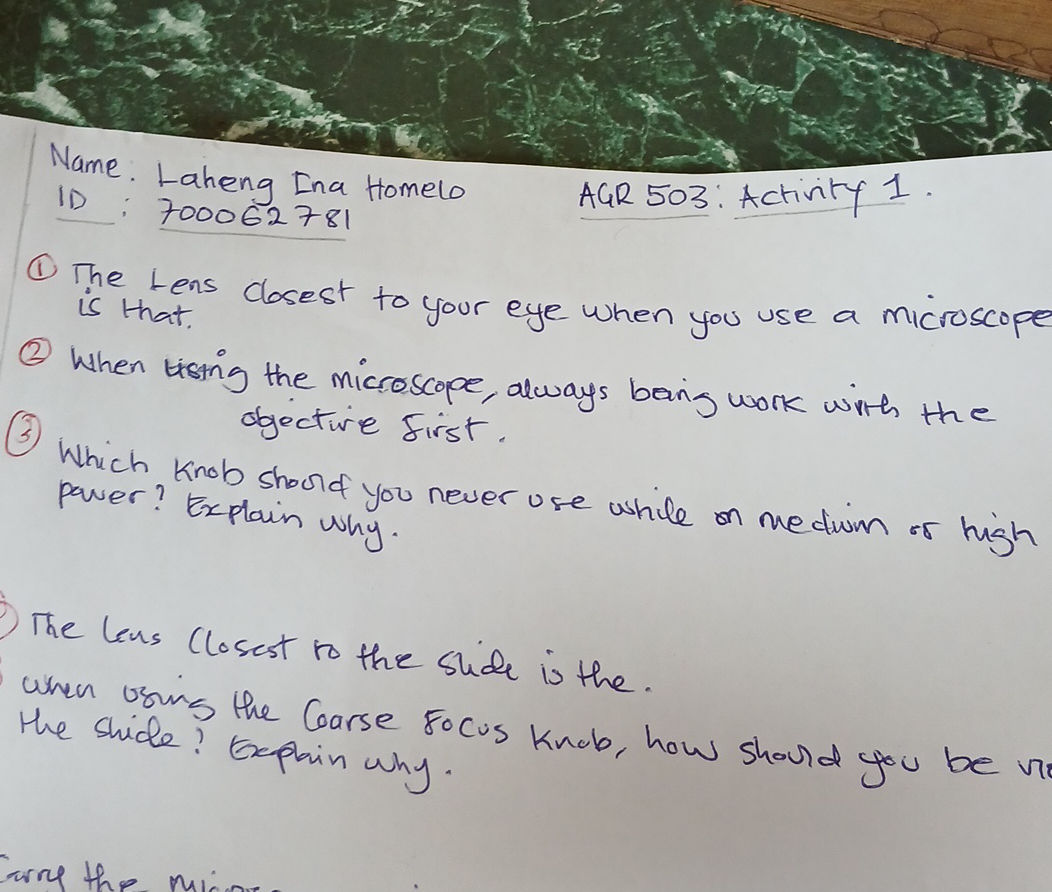 Name: Laheng Ina Homelo
AGR 503: Activity 1.
ID : 700062781
① The Lens closest to your eye when you use a microscope
is that.
② When using the microscope, always being work with the
objective first.
③ Which knob should you never use while on medium or high
power? Explain why.
The lens closest to the slide is the.
when using the Coarse Focus Knob, how should you be
the slide? Explain why.
Carry the